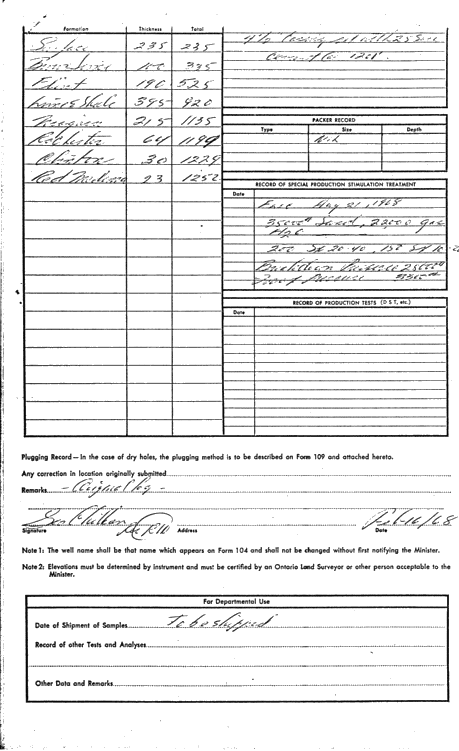 Formation Thickness Total
Surface 235 235
100 335
Flint 190 525
Lime & Shale 395 920
Niagara 215 1135
Rochester 64 1199
Clinton 30 1229
Red Medina 23 1252
4½ Casing set with 25
Cement to 1201'
PACKER RECORD
Type Size Depth
Nil
RECORD OF SPECIAL PRODUCTION STIMULATION TREATMENT
Date
Frac May 21, 1968
35000# Sand, 22000 Gas
H2O
200 20-40, 150
Breakdown Pressure
Pressure
RECORD OF PRODUCTION TESTS (D S T, etc.)
Date
Plugging Record—In the case of dry holes, the plugging method is to be described on Form 109 and attached hereto.
Any correction in location originally submitted
Remarks - Original log -
Signature Address Date Feb-16/68
Note 1: The well name shall be that name which appears on Form 104 and shall not be changed without first notifying the Minister.
Note 2: Elevations must be determined by instrument and must be certified by an Ontario Land Surveyor or other person acceptable to the
Minister.
For Departmental Use
Date of Shipment of Samples To be shipped
Record of other Tests and Analyses
Other Data and Remarks